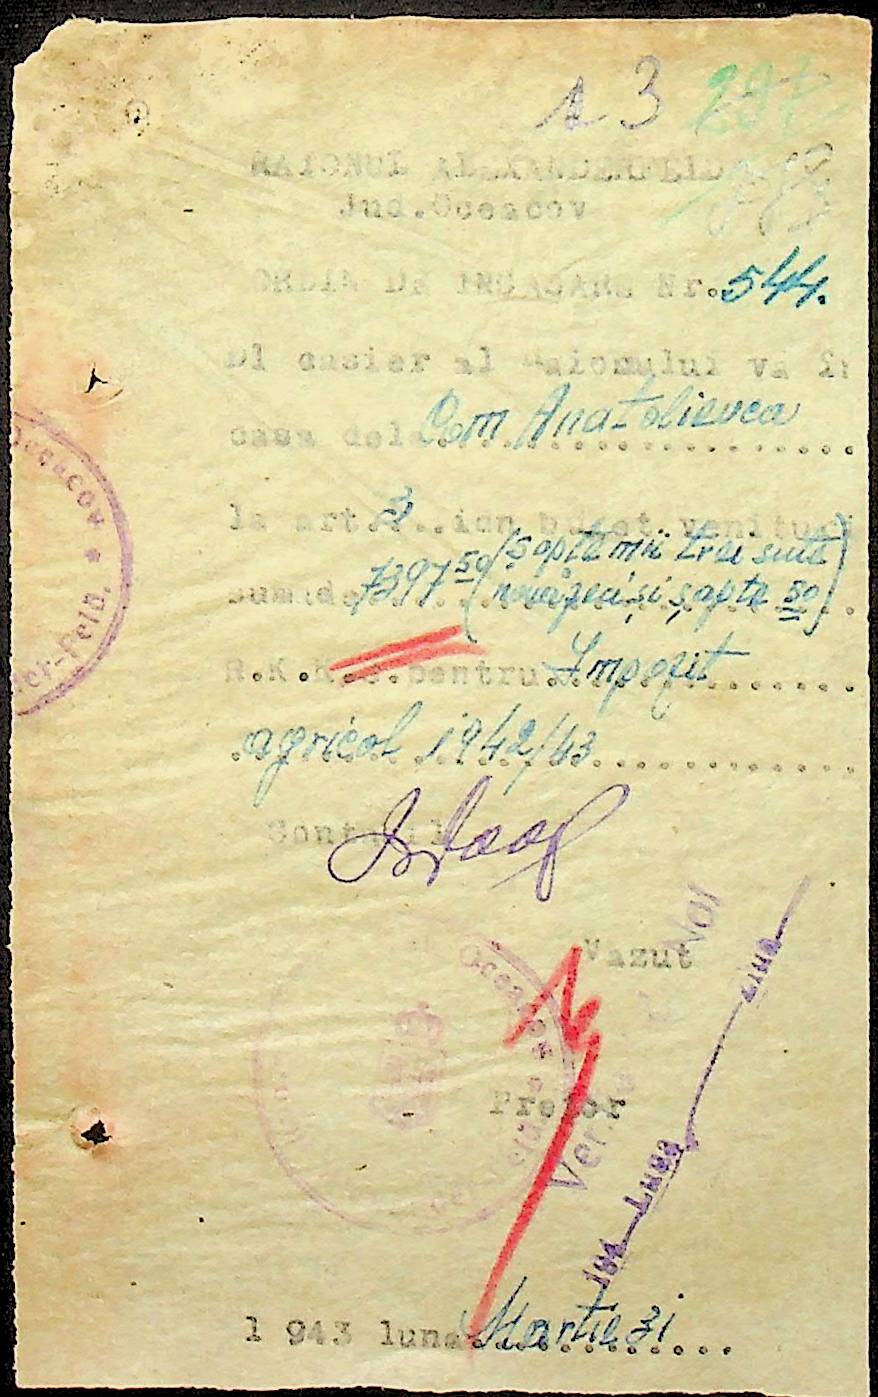 13 297
RAIONUL ALEXANDERFELD
Jud.Oceacov
ORDIN DE INCASARE Nr.544.
Dl casier al Raionului va în
casa dela Com Anatolievca
la art. 3 ..ion buget venituri
suma de 7397 50 (șapte mii trei sute
nouăzeci și șapte 50)
R.K.K.S. pentru Impozit
agricol 1942/43
Contabil
Vazut
Pretor
Oceacov
Ver
194 Luna Ziua
1 943 luna Martie 31